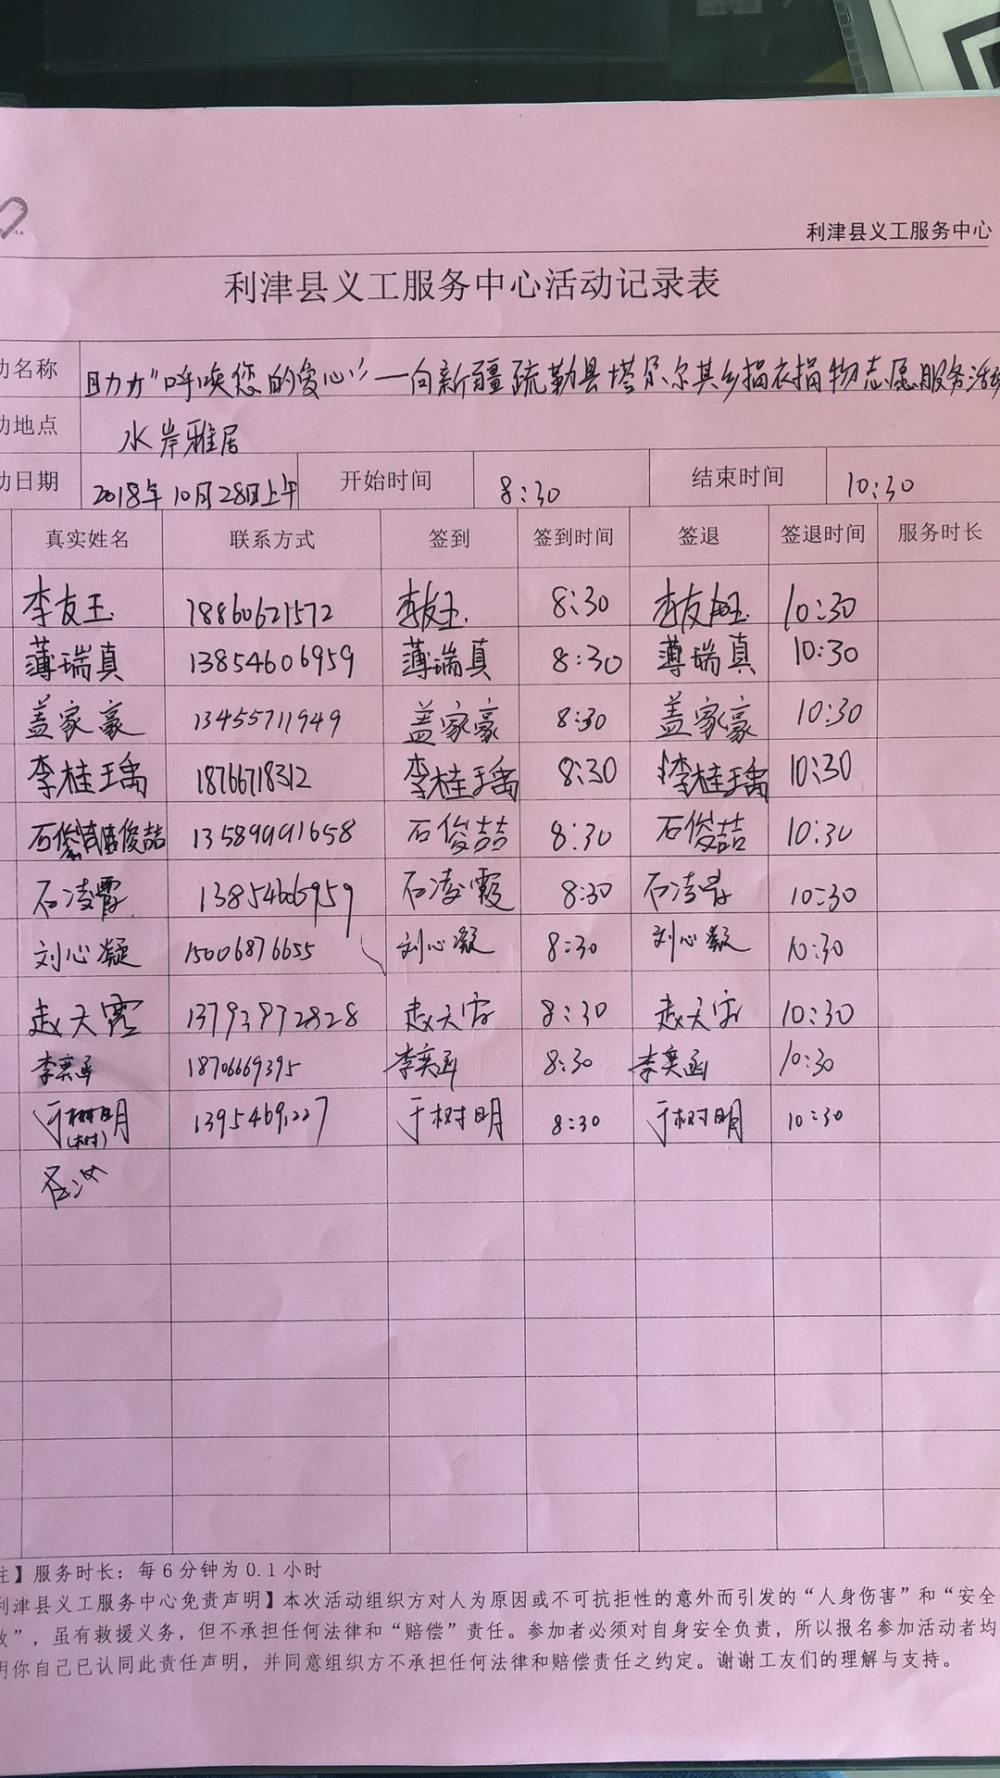 利津县义工服务中心
利津县义工服务中心活动记录表
动名称 助力"呼唤您的爱心"—向新疆疏勒县塔尕尔其乡捐衣捐物志愿服务活动
动地点 水岸雅居
动日期 2018年10月28日上午 开始时间 8:30 结束时间 10:30
真实姓名 联系方式 签到 签到时间 签退 签退时间 服务时长
李友玉 18860621572 李友玉 8:30 李友玉 10:30
薄瑞真 13854606959 薄瑞真 8:30 薄瑞真 10:30
盖家豪 13455711949 盖家豪 8:30 盖家豪 10:30
李桂瑀 18766718312 李桂瑀 8:30 李桂瑀 10:30
石俊喆 13589991658 石俊喆 8:30 石俊喆 10:30
石凌霄 13854606959 石凌霞 8:30 石凌霄 10:30
刘心凝 15006876655 刘心凝 8:30 刘心凝 10:30
赵天霱 13793972828 赵天 8:30 赵天 10:30
李奕函 18706669395 李奕函 8:30 李奕函 10:30
于树明 13954691227 于树明 8:30 于树明 10:30
(树)
注】服务时长：每6分钟为0.1小时
利津县义工服务中心免责声明】本次活动组织方对人为原因或不可抗拒性的意外而引发的“人身伤害”和“安全
故”，虽有救援义务，但不承担任何法律和“赔偿”责任。参加者必须对自身安全负责，所以报名参加活动者均
明你自己已认同此责任声明，并同意组织方不承担任何法律和赔偿责任之约定。谢谢工友们的理解与支持。